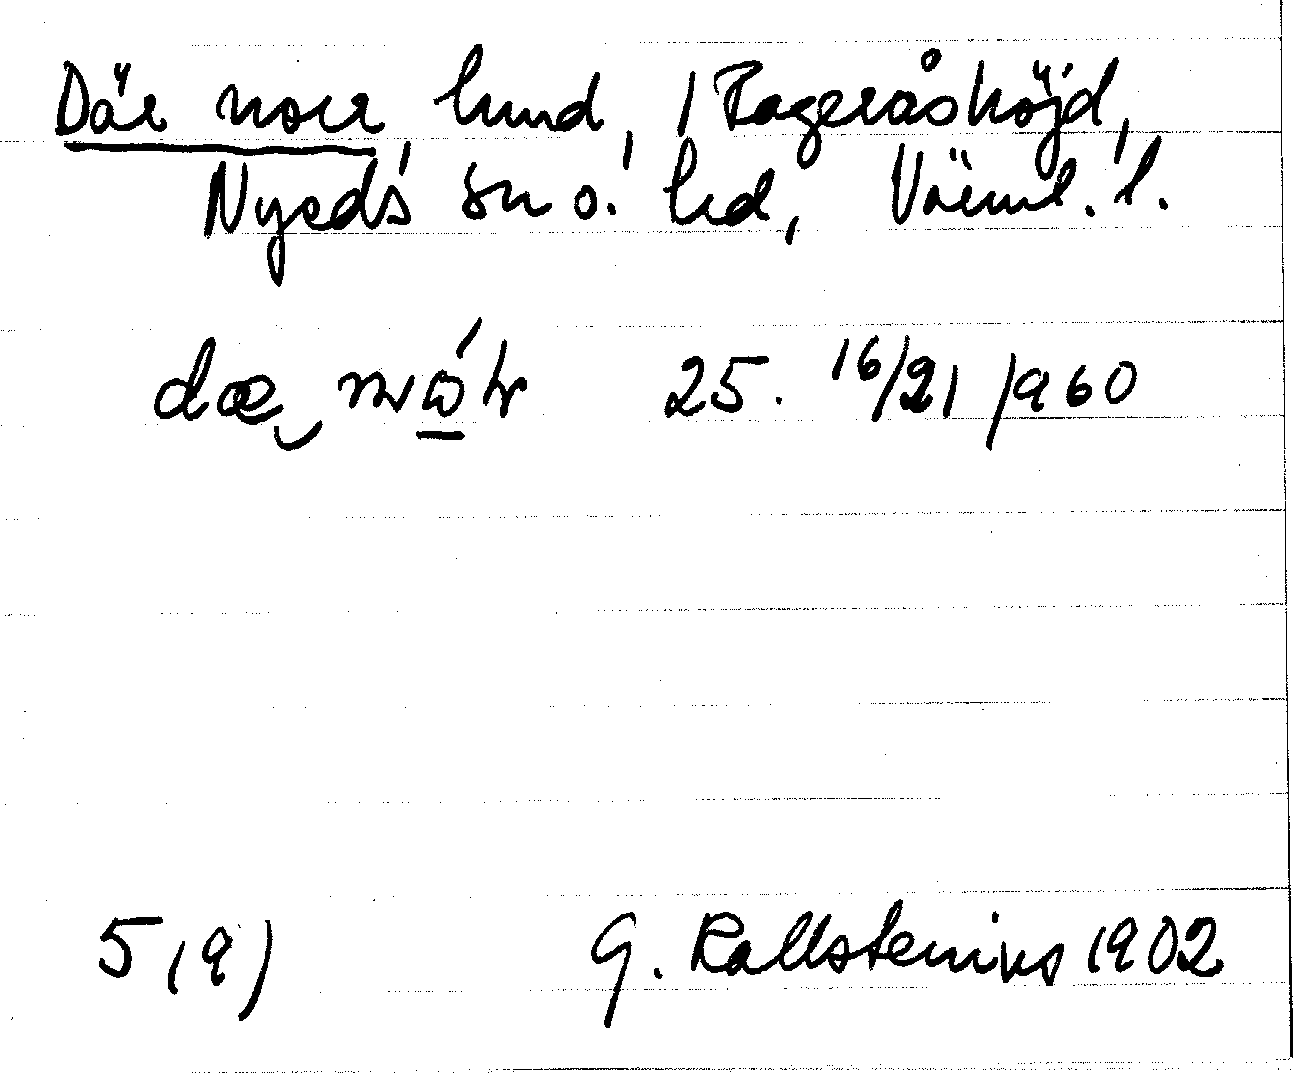 Där norr lund, / Rageråshöjd,
Nyeds sn ö. hd, Värml. l.
25. 16/21 1960
5 (9) G. Kallstenius 1902